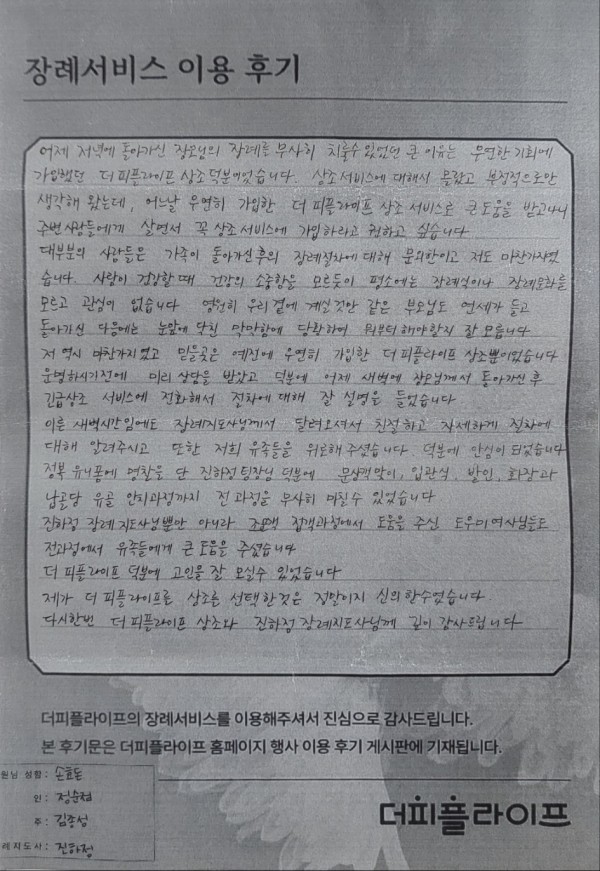 장례서비스 이용 후기
어제 저녁에 돌아가신 장모님의 장례를 무사히 치룰수 있었던 큰 이유는 우연한 기회에
가입했던 더피플라이프 상조 덕분이었습니다. 상조서비스에 대해서 몰랐고 부정적으로만
생각해 왔는데, 어느날 우연히 가입한 더 피플라이프 상조 서비스로 큰 도움을 받고나니
주변사람들에게 살면서 꼭 상조서비스에 가입하라고 권하고 싶습니다
대부분의 사람들은 가족이 돌아가신후의 장례절차에 대해 문외한이고 저도 마찬가지였
습니다. 사람이 건강할때 건강의 소중함을 모르듯이 평소에는 장례식이나 장례문화를
모르고 관심이 없습니다 영원히 우리 곁에 계실것만 같은 부모님도 연세가 들고
돌아가신 다음에는 눈앞에 닥친 막막함에 당황하여 뭐부터 해야할지 잘 모릅니다
저 역시 마찬가지였고 믿을곳은 예전에 우연히 가입한 더 피플라이프 상조뿐이었습니다
운명하시기전에 미리 상담을 받았고 덕분에 어제 새벽에 장모님께서 돌아가신 후
긴급상조 서비스에 전화해서 절차에 대해 잘 설명을 들었습니다
이른 새벽시간임에도 장례지도사님께서 달려오셔서 친절하고 자세하게 절차에
대해 알려주시고 또한 저희 유족들을 위로해주셨습니다. 덕분에 안심이 되었습니다
정복 유니폼에 명찰을 단 진하정팀장님 덕분에 문상객맞이, 입관식, 발인, 화장과
납골당 유골 안치과정까지 전 과정을 무사히 마칠수 있었습니다
진하정 장례지도사님뿐만 아니라 조문객 접객과정에서 도움을 주신 도우미여사님들도
전과정에서 유족들에게 큰 도움을 주셨습니다
더 피플라이프 덕분에 고인을 잘 모실수 있었습니다
제가 더 피플라이프를 상조를 선택한것은 정말이지 신의한수였습니다.
다시한번 더 피플라이프 상조와 진하정 장례지도사님께 깊이 감사드립니다
더피플라이프의 장례서비스를 이용해주셔서 진심으로 감사드립니다.
본 후기문은 더피플라이프 홈페이지 행사 이용 후기 게시판에 기재됩니다.
원님 성함: 손효돈
인: 정순점
주: 김종성
례지도사: 진하정
더피플라이프